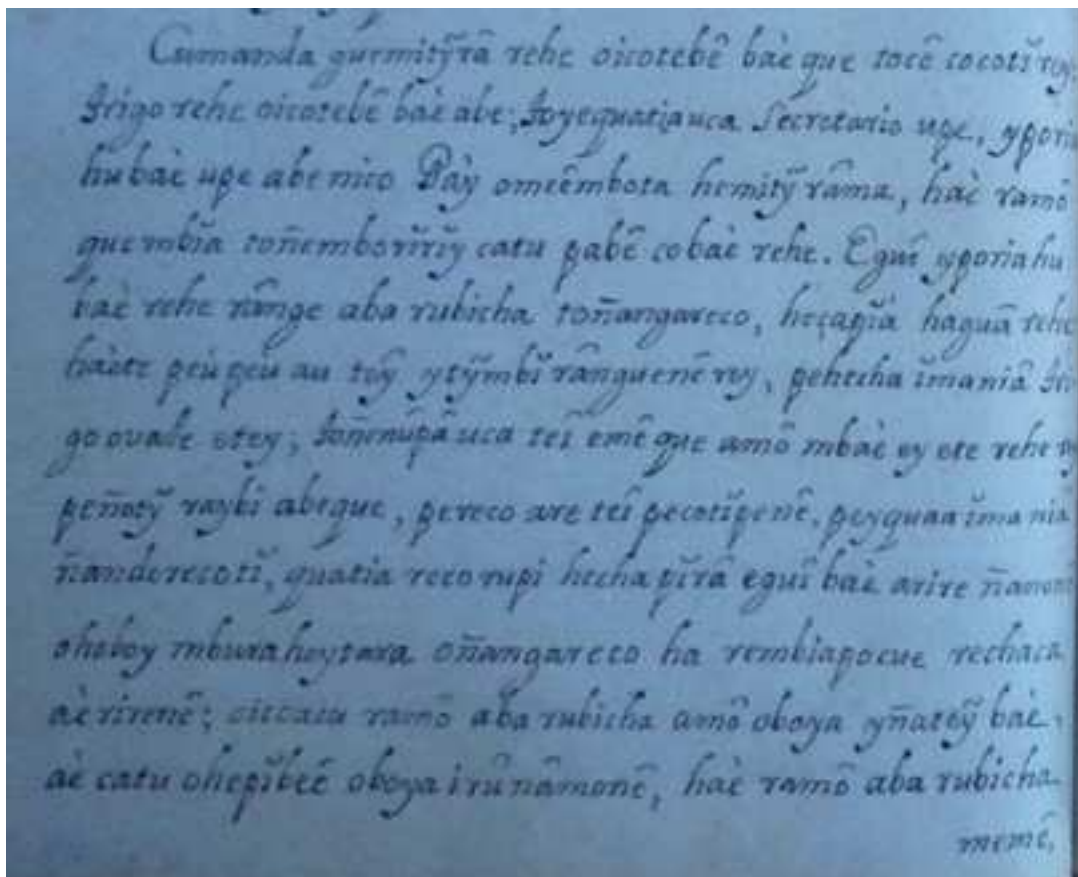 Cumanda guemitỹrâ rehe oicotebê baè que tocê cocotĭ
trigo rehe oicotebê baè abe; toyequatiauca Secretario upe, yporia
hubaè upe abe mico Paỹ omeêmbota hemitỹ râma, haè ramô
guembĭa toñemborĭrĭỹ catu pabê cobaè rehe. Eguî yporiahu
baè rehe rânge aba rubicha toñangareco, heçapĭá haguâ rehe
haète peù peù au teỹ ytỹmbĭ rânguenê rey, pehecha ĭmaniâ tri
go ovale etey, toñenûpâ uca teî emê que amô mbaè ey ete rehe
peñotỹ raybi abeque, pereco are teî pecotĭpenê, peyquaa ĭma niâ
ñanderecotĭ, quatia reco rupi hechapĭrâ eguî baè arire
ohoboy mburaheytara oñangareco ha rembiapocue rechaca
aè rirenê; oiccatu ramô aba rubicha amô oboya yñateỹ baè,
aè catu ohepĭbeê oboya irûnâmonê, haè ramô aba rubicha
memê,